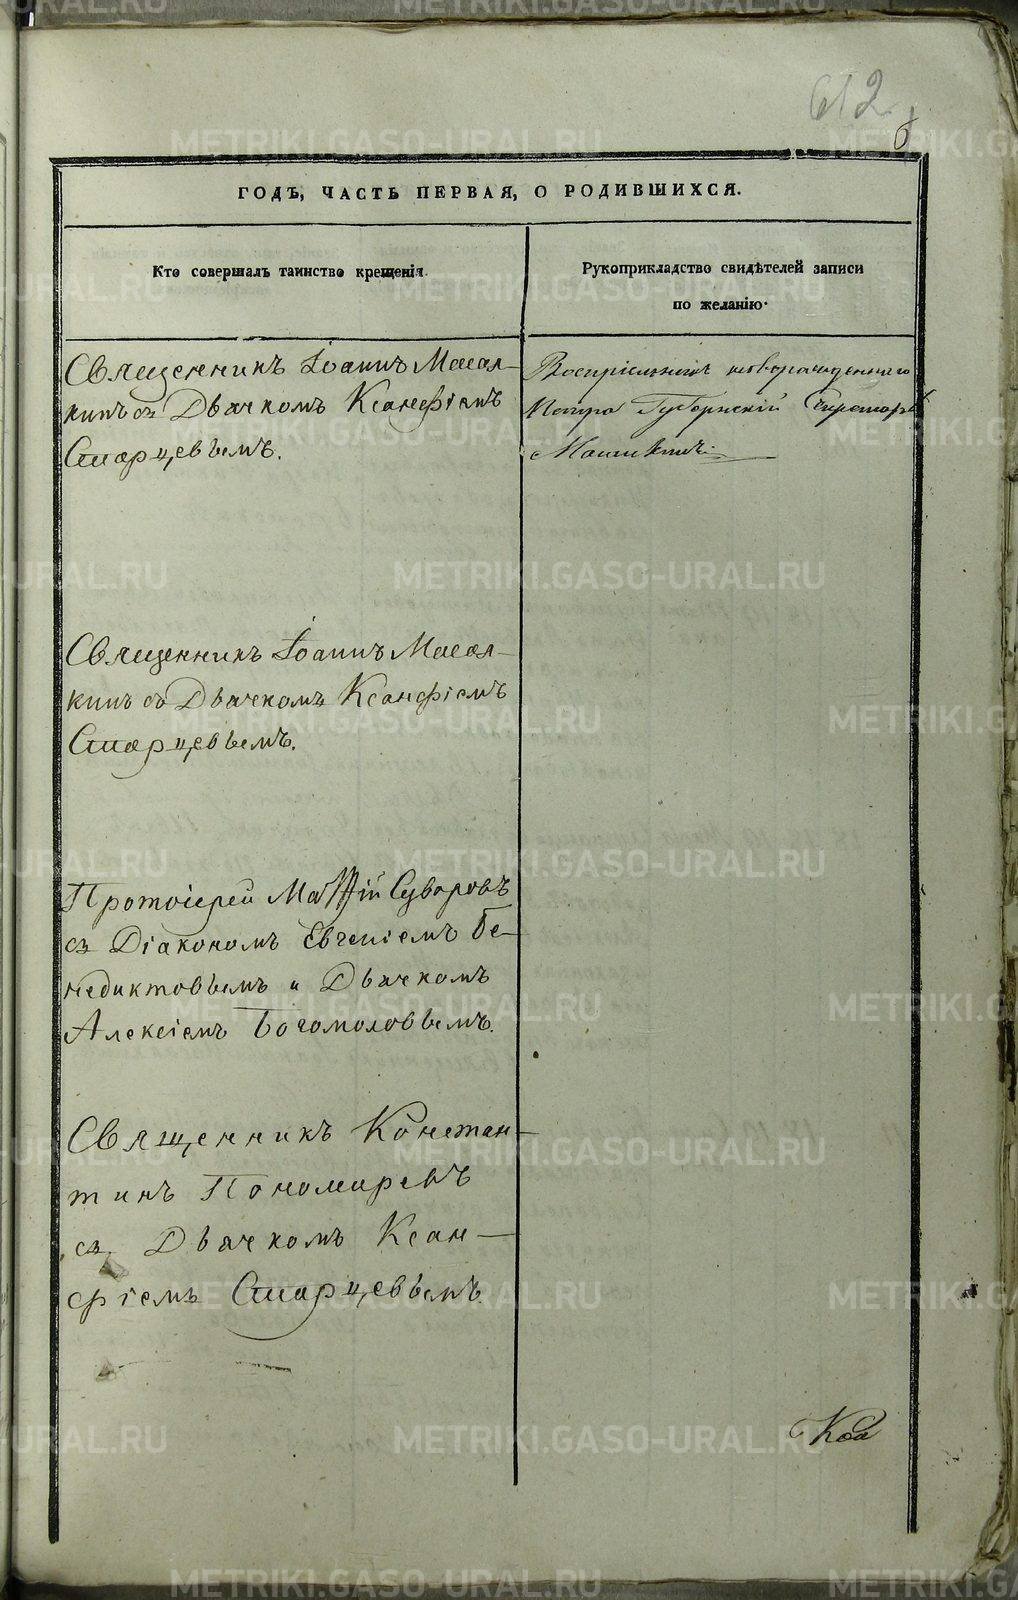 612
6
ГОДЪ, ЧАСТЬ ПЕРВАЯ, О РОДИВШИХСЯ.
Кто совершалъ таинство крещенія.
Рукоприкладство свидѣтелей записи
по желанію.
Священникъ Іоаннъ Масал-
кинъ съ Дьячкомъ Ксанфіемъ
Старцевымъ.
Воспріемникъ новорожденнаго
Петра Губернскій Секретарь
Священникъ Іоаннъ Масал-
кинъ съ Дьячкомъ Ксанфіемъ
Старцевымъ.
Протоіерей Матѳій Суворовъ
съ Діакономъ Евгеніемъ Бе-
недиктовымъ и Дьячкомъ
Алексіемъ Богомоловымъ.
Священникъ Констан-
тинъ Пономаревъ
съ Дьячкомъ Ксан-
фіемъ Старцевымъ.
METRIKI.GASO-URAL.RU